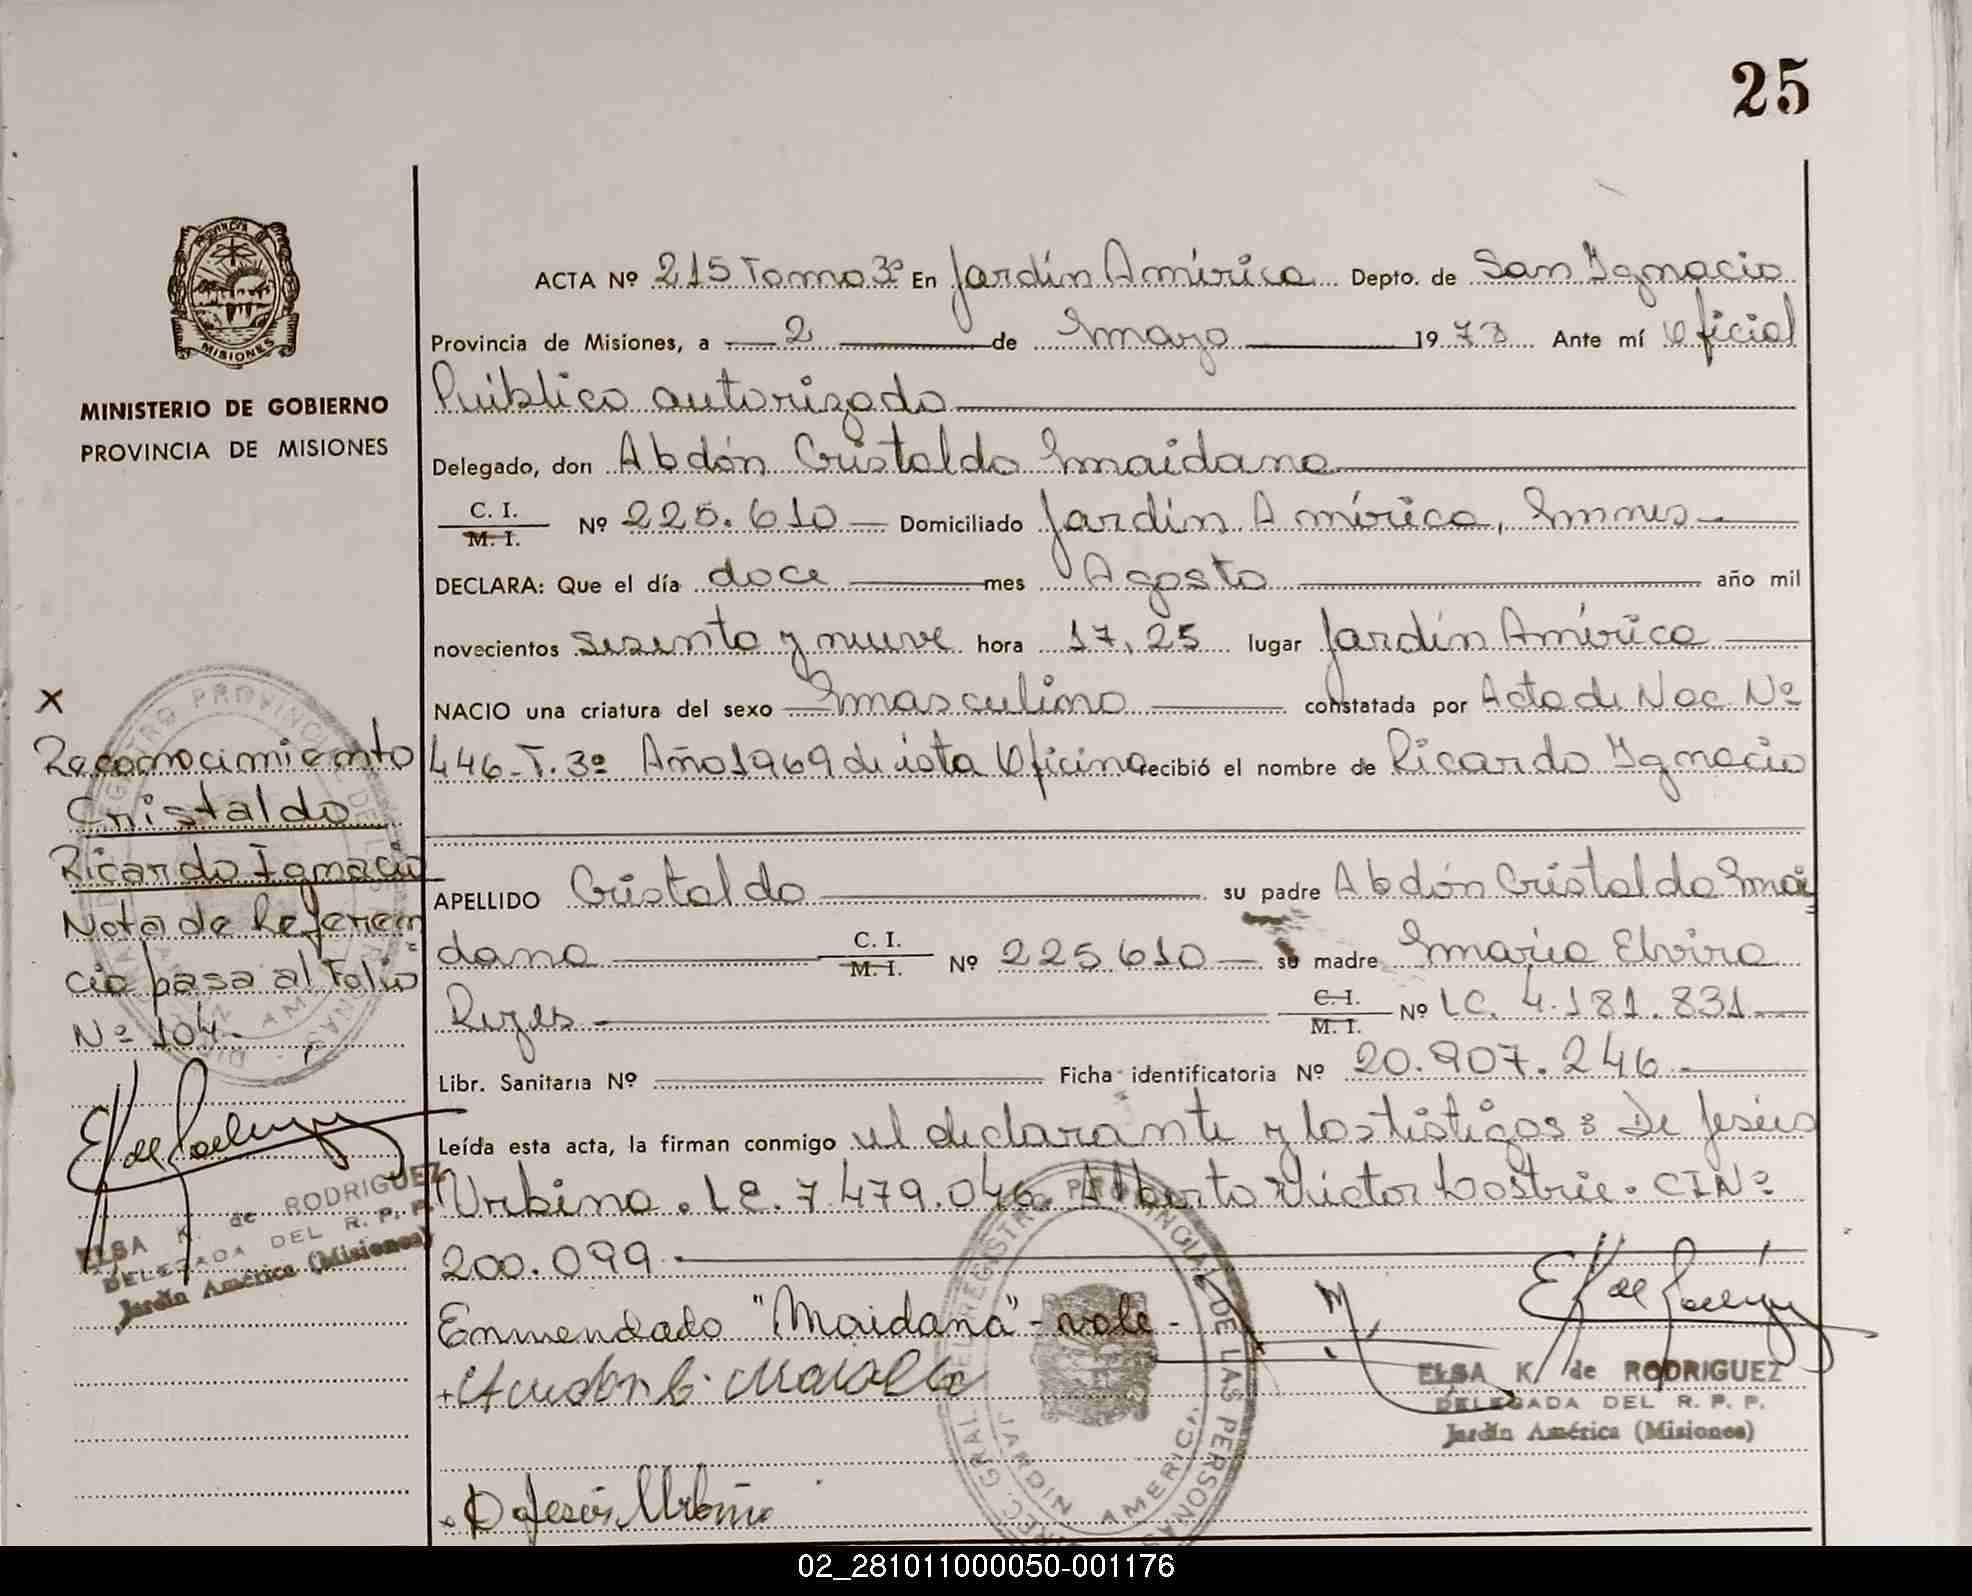 25
MINISTERIO DE GOBIERNO
PROVINCIA DE MISIONES
MISIONES
ACTA Nº 215 Tomo 3º En Jardín América Depto. de San Ignacio
Provincia de Misiones, a 2 de mayo 1973 Ante mí Oficial
Público autorizado
Delegado, don Abdón Cristaldo Maidana
C. I.
M. I.
Nº 225.610 Domiciliado Jardín América, Mnes
DECLARA: Que el día doce mes Agosto año mil
novecientos sesenta y nueve hora 17,25 lugar Jardín América
NACIO una criatura del sexo masculino constatada por Acta de Nac. Nº
446-T.3º Año 1969 de ésta Oficina recibió el nombre de Ricardo Ignacio
APELLIDO Cristaldo su padre Abdón Cristaldo Mai=
dana C. I. M. I. Nº 225.610 su madre María Elvira
Reyes C. I. M. I. Nº LC. 4.181.831
Libr. Sanitaria Nº Ficha identificatoria Nº 20.907.246
Leída esta acta, la firman conmigo el declarante y los testigos: De Jesús
Urbino. LE. 7.479.046. Alberto Victor CI Nº
200.099
Enmendado "Maidana" - vale -
De Jesús Urbino
ELSA K. de RODRIGUEZ
DELEGADA DEL R. P. P.
Jardín América (Misiones)
x
Reconocimiento
Cristaldo
Ricardo Ignacio
Nota de Referen=
cia pasa al Folio
Nº 104
ELSA K. de RODRIGUEZ
DELEGADA DEL R. P. P.
Jardín América (Misiones)
REGISTRO PROVINCIAL DE LAS PERSONAS
JARDIN AMERICA
02_281011000050-001176